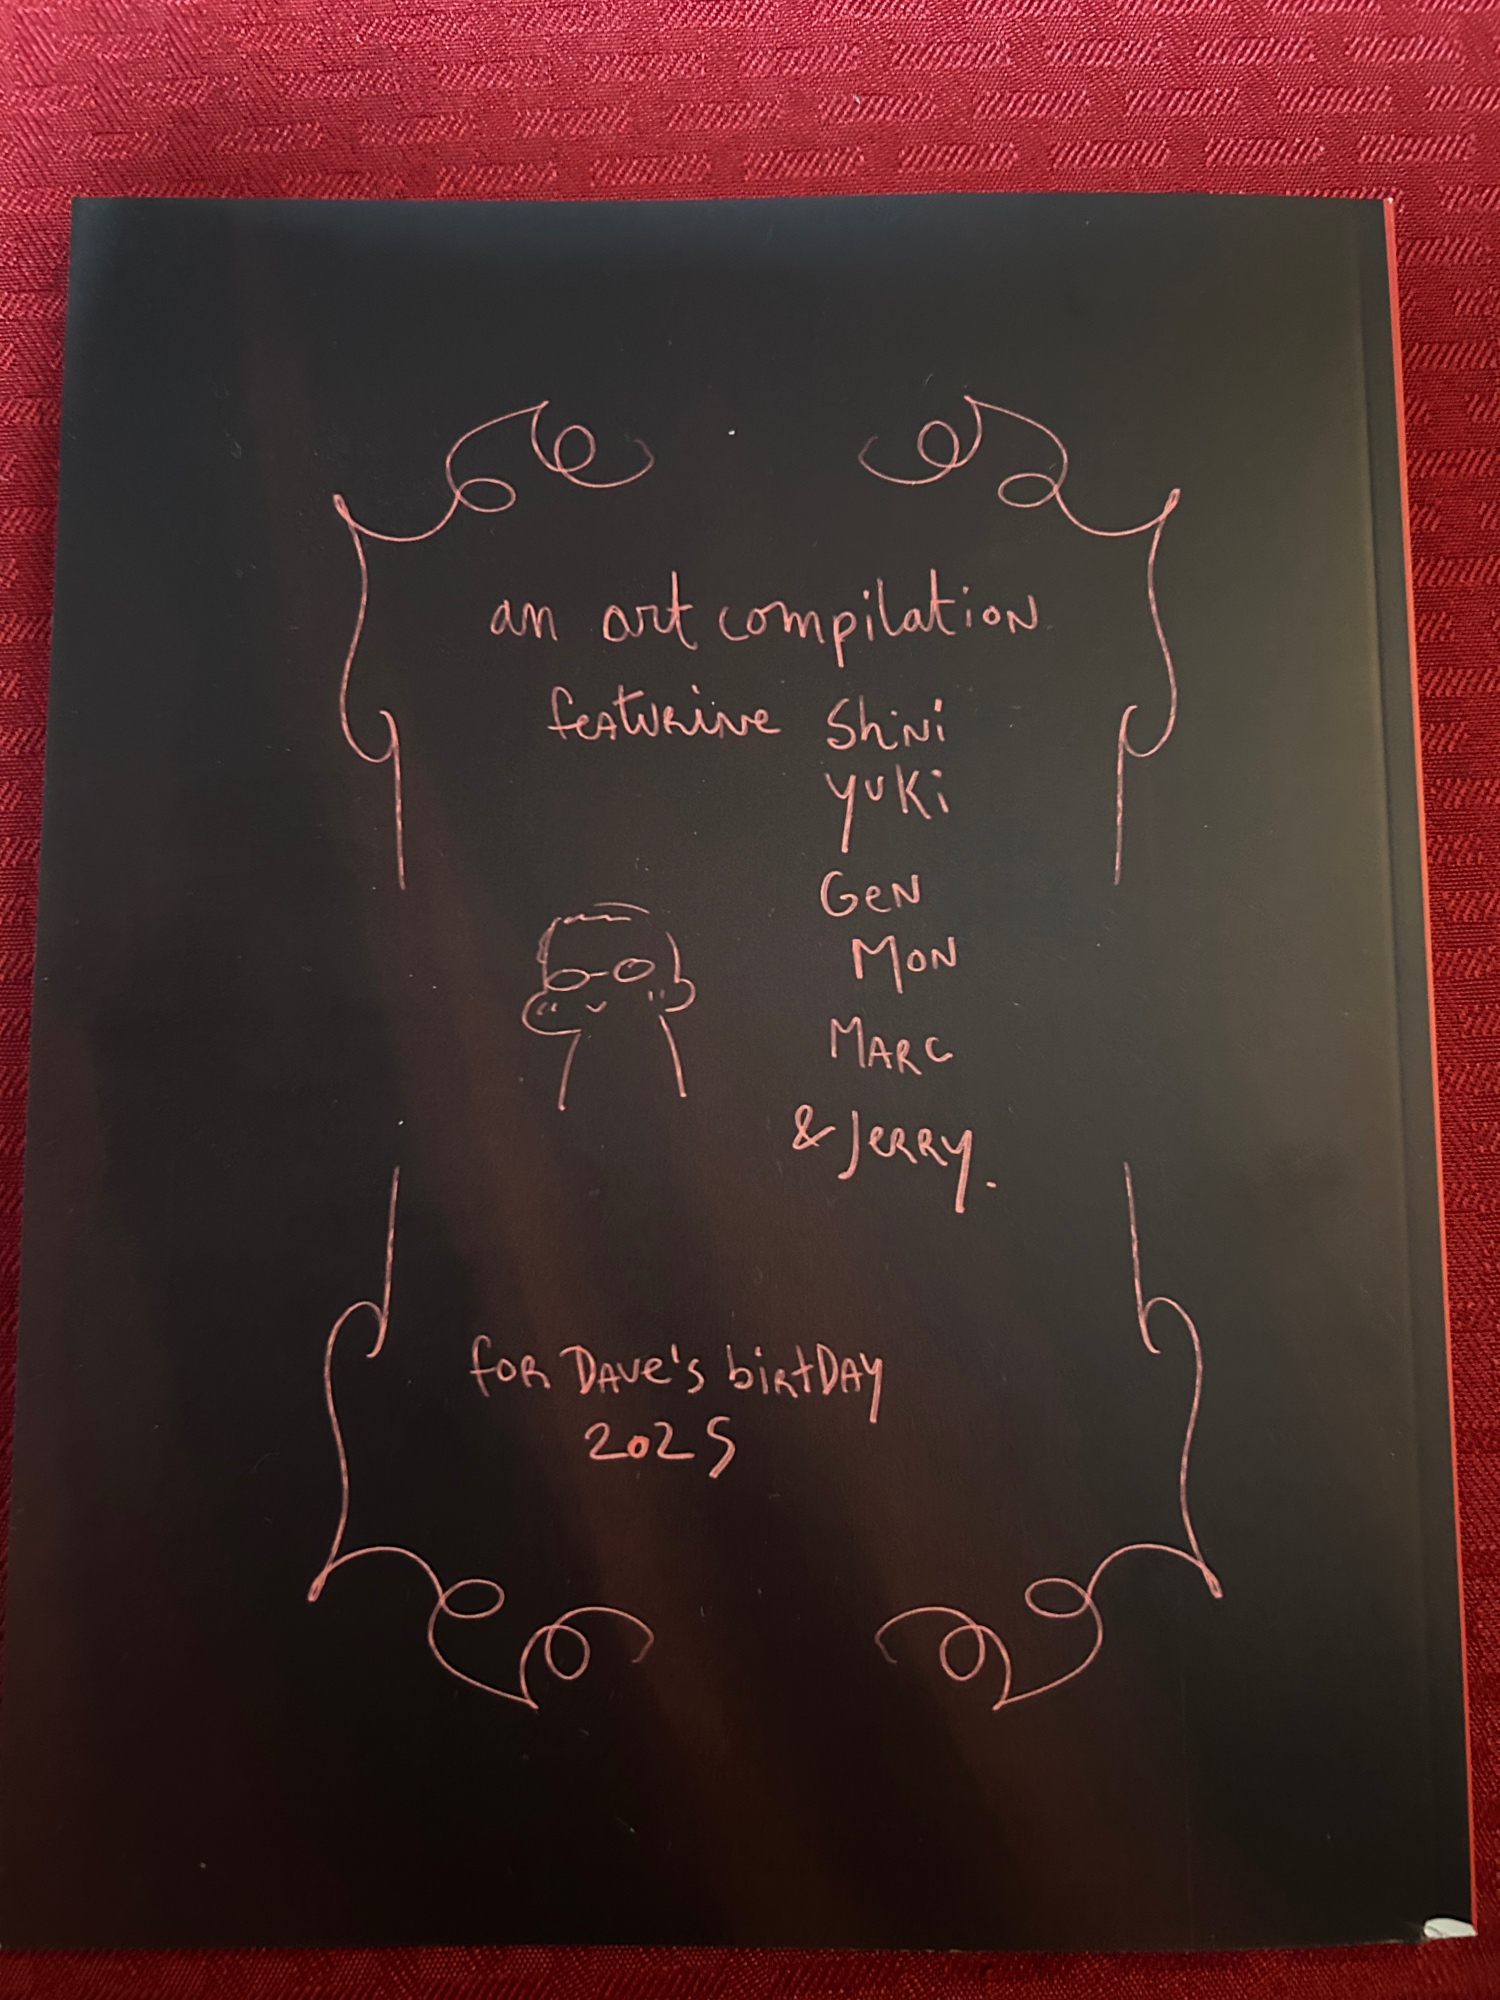 an art compilation
featuring Shini
Yuki
Gen
Mon
Marc
& Jerry.
for Dave's birtDay
2025